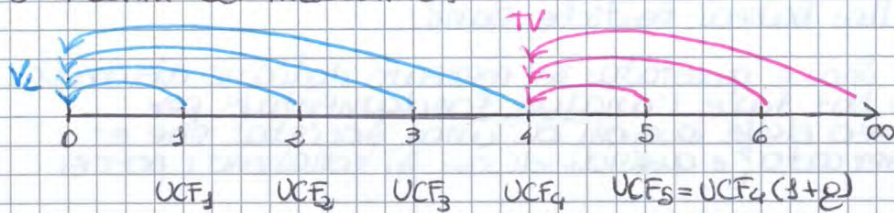 TV
VL
0 1 2 3 4 5 6 ∞
UCF1 UCF2 UCF3 UCF4 UCF5 = UCF4 (1+g)